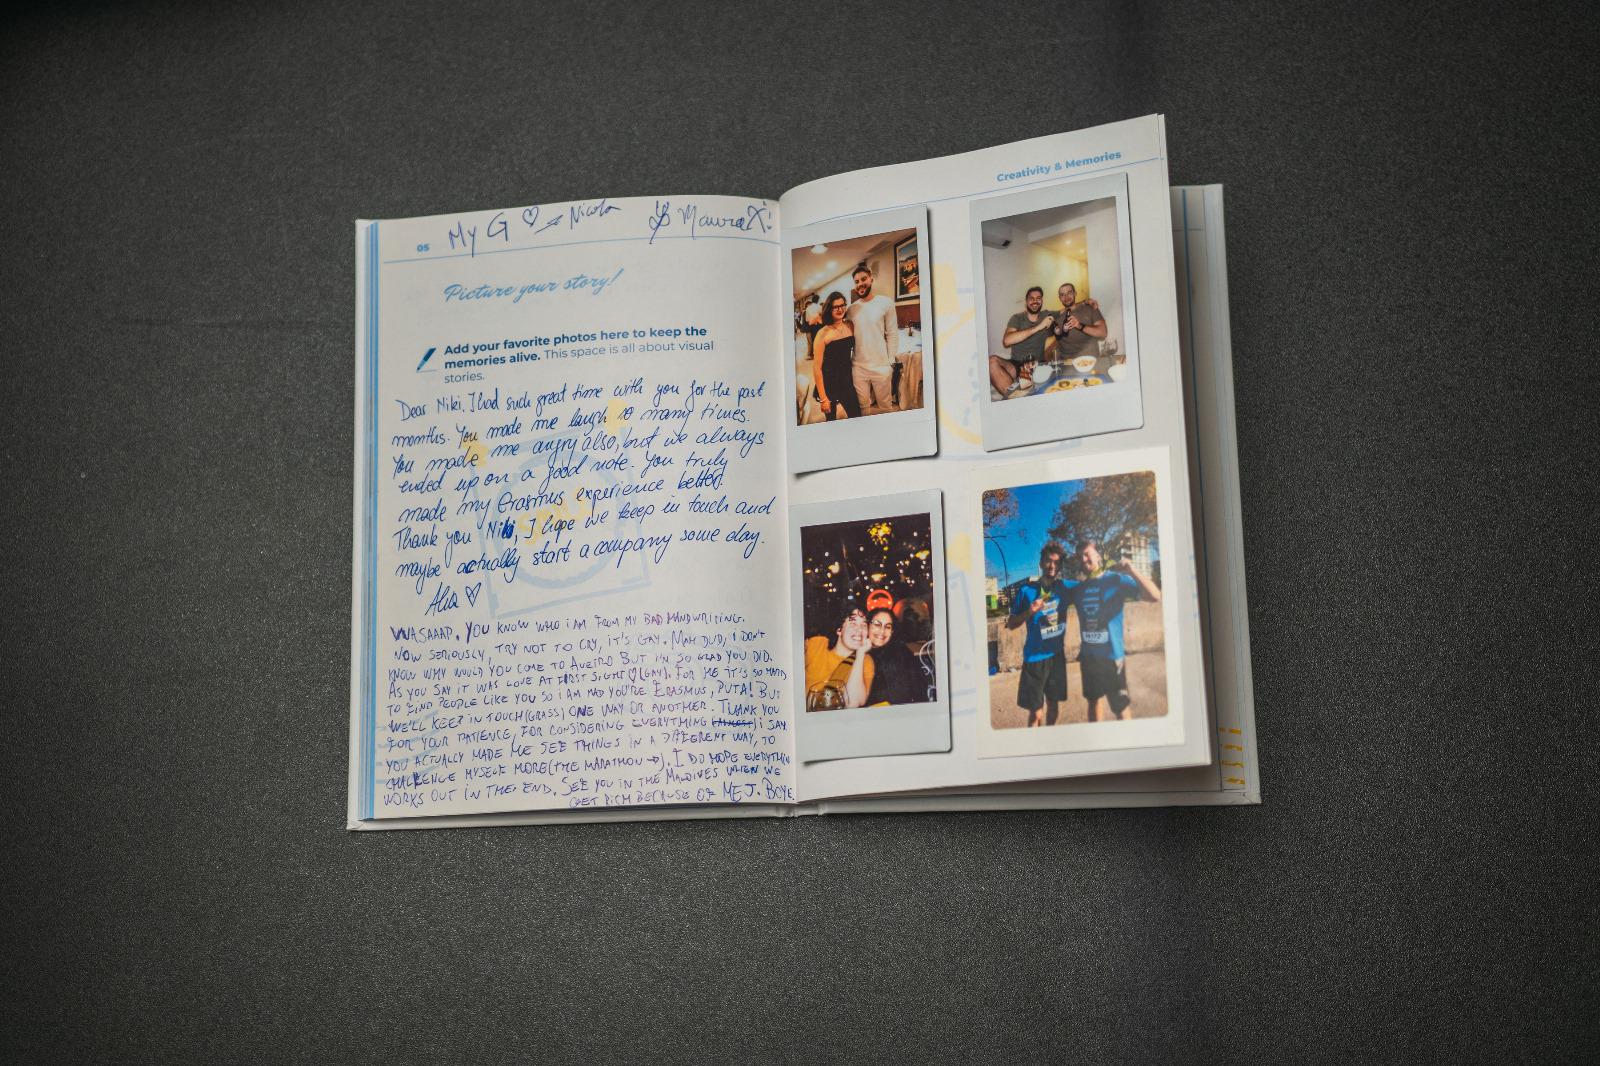 My G ♡ Nicola
Maura
05
Picture your story!
Add your favorite photos here to keep the
memories alive. This space is all about visual
stories.
Dear Niki. I had such great time with you for the past
months. You made me laugh so many times.
You made me angry also, but we always
ended up on a good note. You truly
made my Erasmus experience better.
Thank you Niki, I hope we keep in touch and
maybe actually start a company some day.
♡
WASAAAP. YOU KNOW WHO i AM FROM MY BAD HANDWRITING.
NOW SERIOUSLY, TRY NOT TO CRY, IT'S GAY. MAH DUD, i DON'T
KNOW WHY WOULD YOU COME TO AVEIRO BUT I'M SO GLAD YOU DID.
AS YOU SAY IT WAS LOVE AT FIRST SIGHT ♡ (GAY). FOR ME IT'S SO HARD
TO FIND PEOPLE LIKE YOU SO i AM MAD YOU'RE ERASMUS, PUTA! BUT
WE'LL KEEP IN TOUCH (GRASS) ONE WAY OR ANOTHER. THANK YOU
FOR YOUR PATIENCE, FOR CONSIDERING EVERYTHING i SAY.
YOU ACTUALLY MADE ME SEE THINGS IN A DIFFERENT WAY, TO
CHALLENGE MYSELF MORE (THE MARATHON →). I DO HOPE EVERYTHIN
WORKS OUT IN THE END. SEE YOU IN THE MALDIVES WHEN WE
GET RICH BECAUSE OF ME J. BOYE.
Creativity & Memories